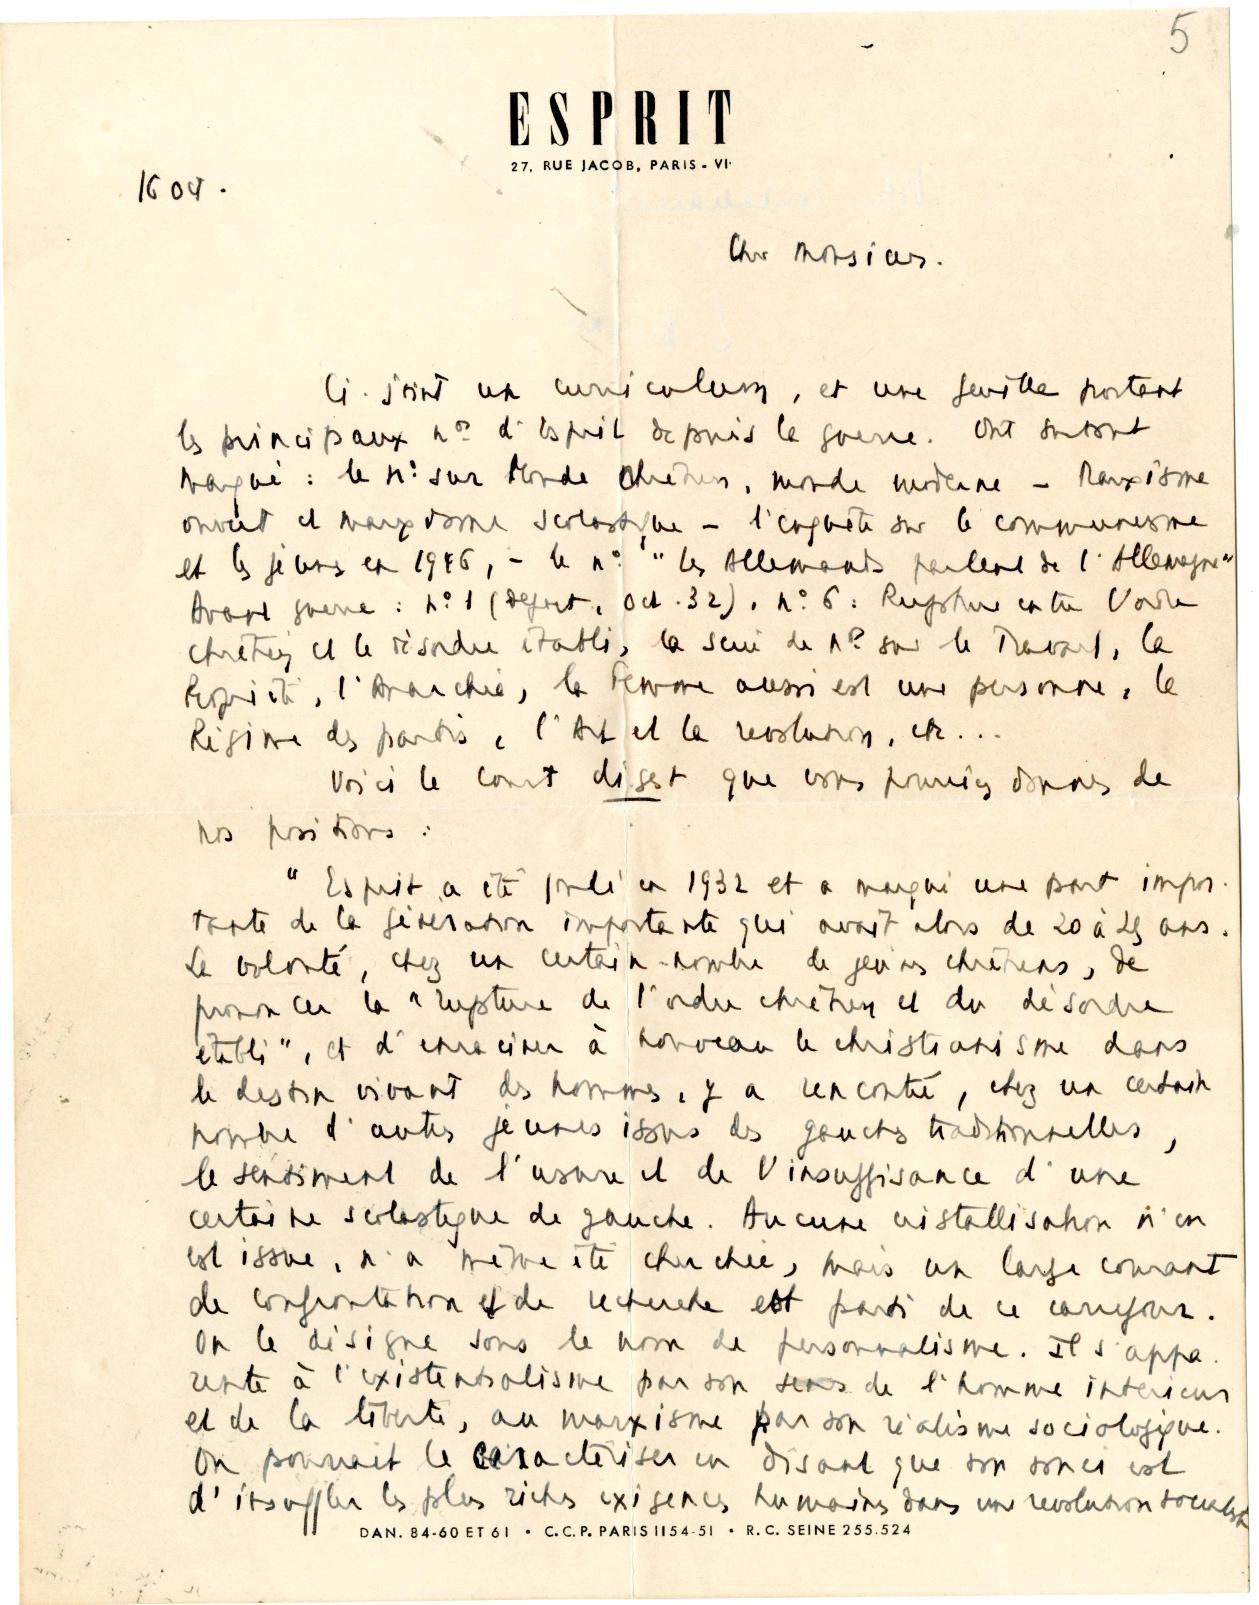 5
ESPRIT
27, RUE JACOB, PARIS - VI
16 04.
Cher Monsieur.
Ci-joint un curriculum, et une feuille portant
les principaux nos d'Esprit depuis la guerre. Ont surtout
marqué : le n° sur Monde chrétien, monde moderne – Marxisme
ouvert et marxisme scolastique – l'enquête sur le communisme
et les jeunes en 1946, – le n° "Les Allemands parlent de l'Allemagne"
Avant guerre : n° 1 (Départ, oct. 32), n° 6 : Rupture entre l'ordre
chrétien et le désordre établi, la série de nos sur le Travail, la
Propriété, l'Anarchie, la Femme aussi est une personne, le
Régime des partis, l'Art et la révolution, etc...
Voici le court digest que vous pourriez donner de
nos positions :
"Esprit a été fondé en 1932 et a marqué une part impor-
tante de la génération importante qui avait alors de 20 à 25 ans.
La volonté, chez un certain nombre de jeunes chrétiens, de
prononcer la "rupture de l'ordre chrétien et du désordre
établi", et d'enraciner à nouveau le christianisme dans
le destin vivant des hommes, y a rencontré, chez un certain
nombre d'autres jeunes issus des gauches traditionnelles,
le sentiment de l'usure et de l'insuffisance d'une
certaine scolastique de gauche. Aucune cristallisation n'en
est issue, n'a même été cherchée, mais un large courant
de confrontation et de recherche est parti de ce carrefour.
On le désigne sous le nom de personnalisme. Il s'appa-
rente à l'existentialisme par son sens de l'homme intérieur
et de la liberté, au marxisme par son réalisme sociologique.
On pourrait le caractériser en disant que son souci est
d'insuffler les plus riches exigences humaines dans une révolution socialiste
DAN. 84-60 ET 61 • C.C.P. PARIS 1154-51 • R.C. SEINE 255.524